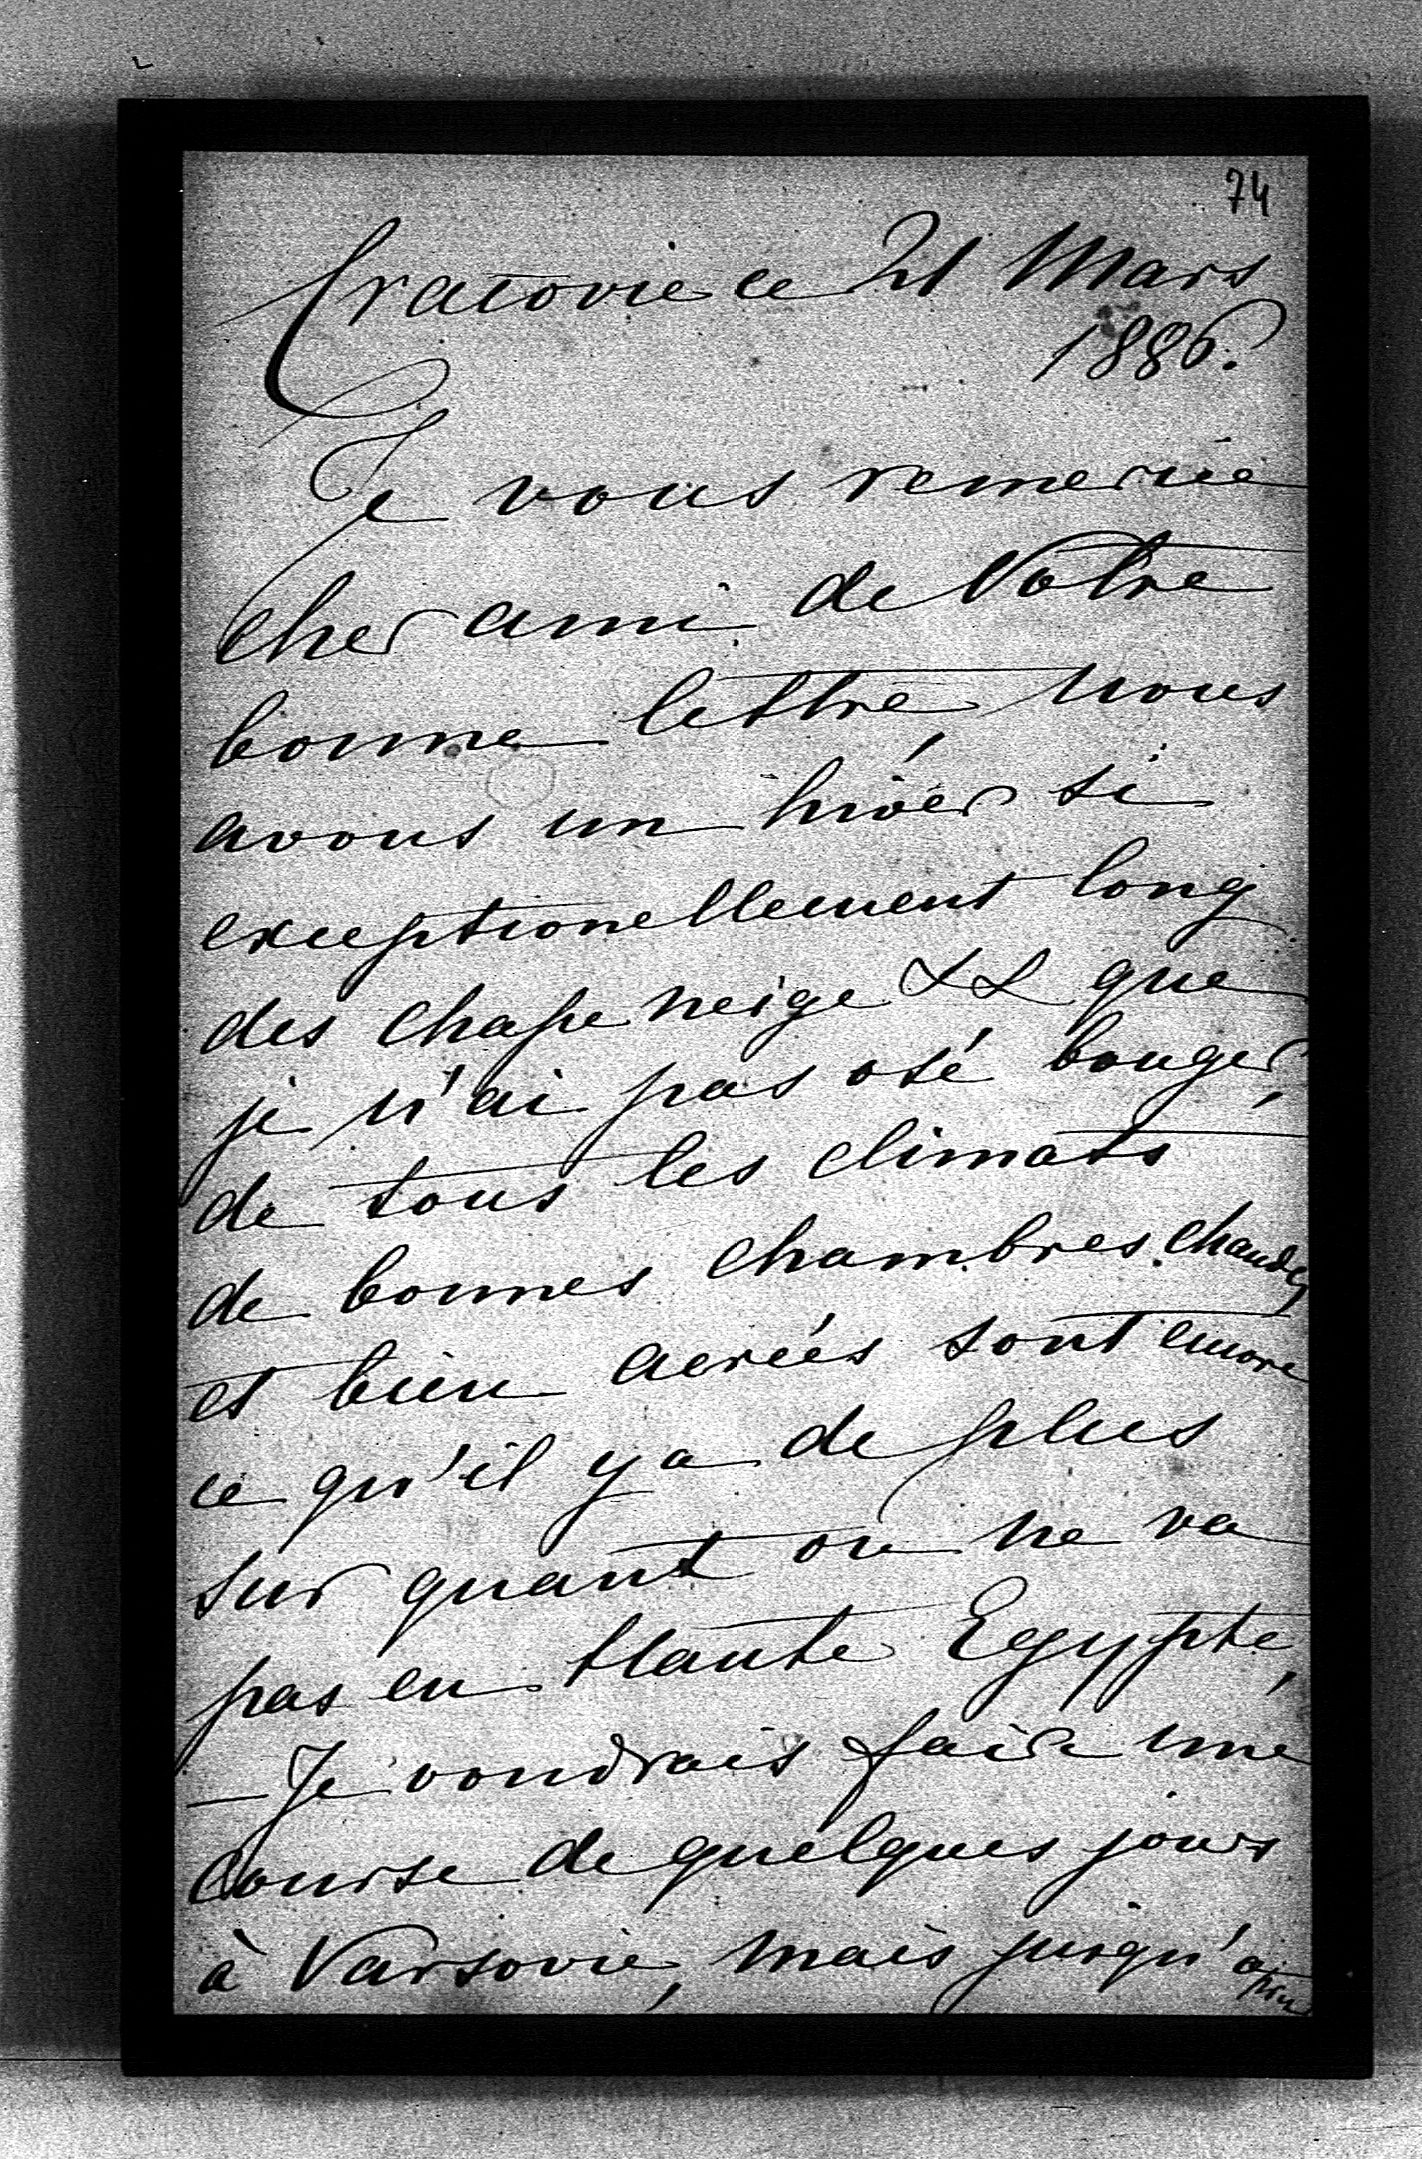 74
Cracovie ce 21 Mars
1886.
Je vous remercie
cher ami de Votre
bonne lettre, nous
avons un hivér si
exceptionellement long
des chasse neige && que
je n'ai pas osé bouger,
de tous les climats
de bonnes chambres chaudes
et bien aereés sont encore
ce qu'il y a de plus
sur quant on ne va
pas en Haute Egypte,
— Je voudrais faire une
course de quelques jours
à Varsovie, mais jusqu'à